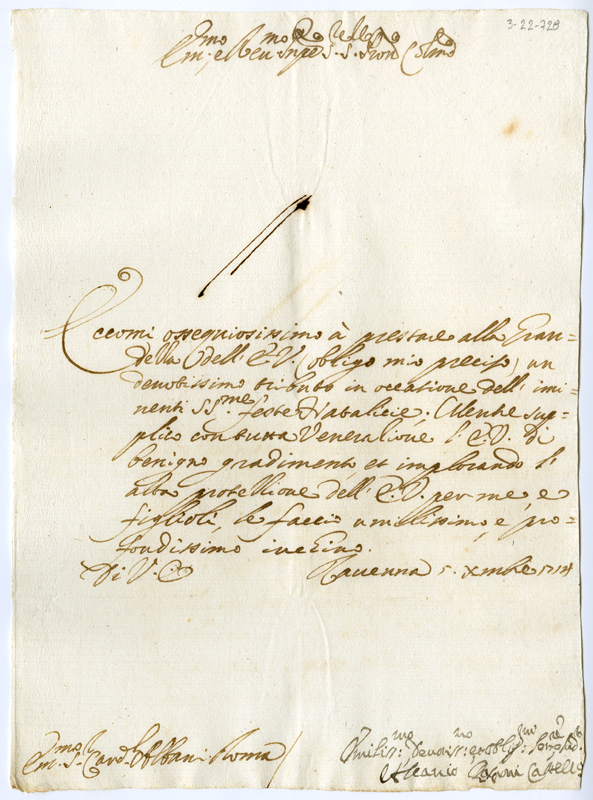 3-22-729
Em.mo e Reu.mo Sig.re S. S. Pron Col.mo
Eccomi ossequiosissimo à prestare alla Gran=
dezza dell' E. V. (obligo mio preciso) un
deuotissimo tributo in occatione dell' imi=
nenti SS.me feste Natalicie. Mentre sup=
plico con tutta Veneratione l' E. V. di
benigno gradimento, et implorando l'
alta protettione dell' E. V. per me, e
figlioli, le faccio umilissimo, e pro=
fondissimo inchino.
Di V. E. Rauenna 5. Xmbre 1714
Em.mo S. Card. Albani Roma
Umilis.mo Deuotis.mo et Obblig.mo
Ascanio